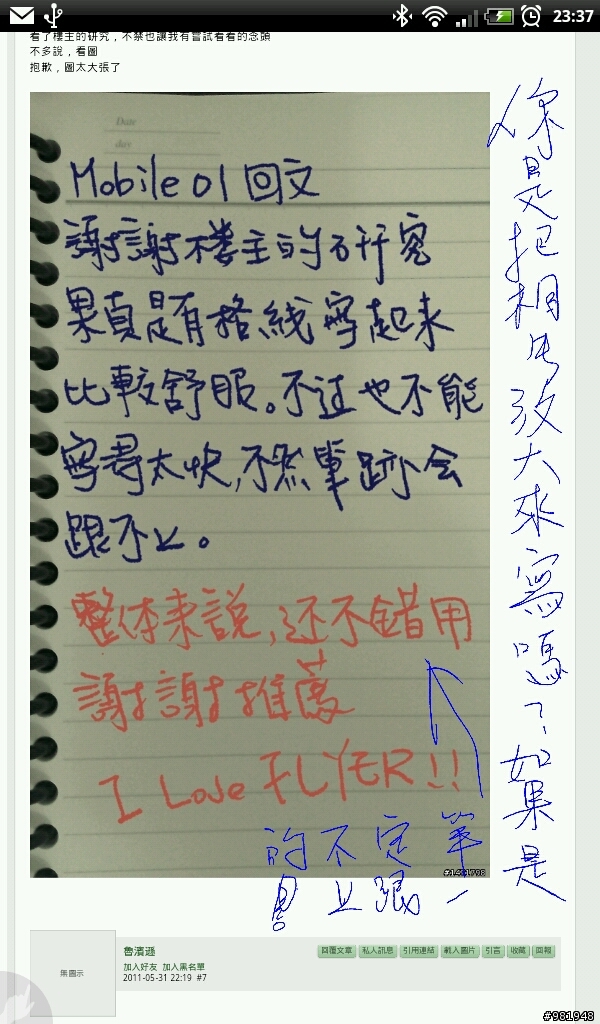 23:37
看了樓主的研究，不禁也讓我有嘗試看看的念頭
不多說，看圖
抱歉，圖太大張了
Date
day
Mobile 01 回文
謝謝楼主的研究
果真是有格線寫起來
比較舒服。不过也不能
寫得太快,不然筆跡会
跟不上。
整体来說,还不錯用
謝謝推薦
I Love FLYER!!
你是把相片放大來寫嗎？如果是
筆一
定跟
不上
的喔!
無圖示
魯濱遜
加入好友 加入黑名單
2011-05-31 22:19 #7
回覆文章 私人訊息 引用連結 載入圖片 引言 收藏 回報
#981948